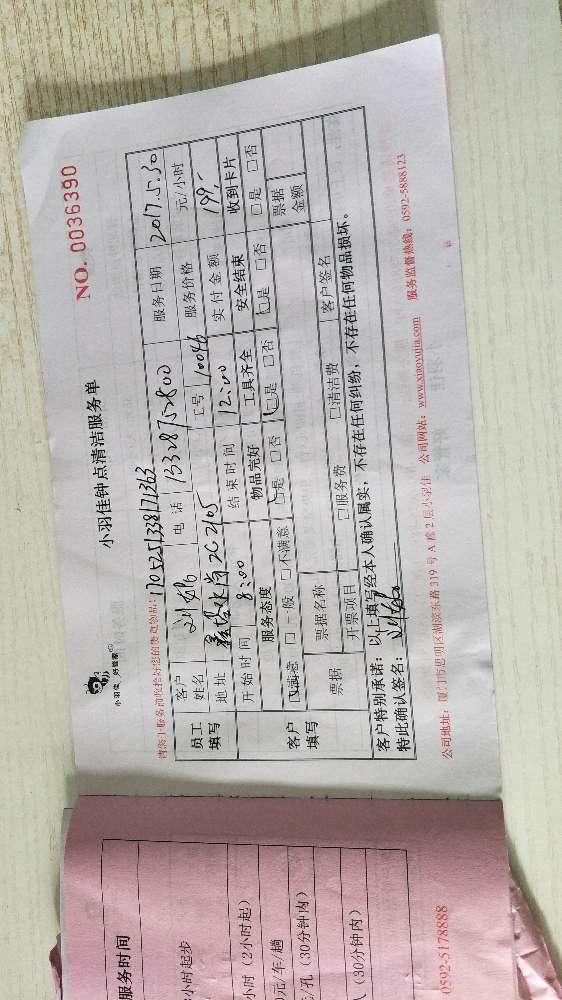 小羽佳 好管家
小羽佳钟点清洁服务单
NO. 0036390
员工填写
客户姓名
电话
服务日期 2017.5.30
地址 2105
工号 10046
服务价格 元/小时
开始时间 8:00
结束时间 12:00
实付金额 199,-
客户填写
服务态度
物品完好
工具齐全
安全结束
收到卡片
☑满意 □一般 □不满意
□是 □否
□是 □否
□是 □否
□是 □否
票据
票据名称
票据金额
开票项目
□服务费
□清洁费
客户签名
客户特别承诺:以上填写经本人确认属实,不存在任何纠纷,不存在任何物品损坏。
特此确认签名:
公司地址:厦门市思明区湖滨东路319号A幢2层小羽佳 公司网站:www.xiaoyujia.com 服务监督热线:0592-5888123
服务时间
小时起步
小时(2小时起)
0元/车/趟
元/孔(30分钟内)
(30分钟内)
0592-5178888